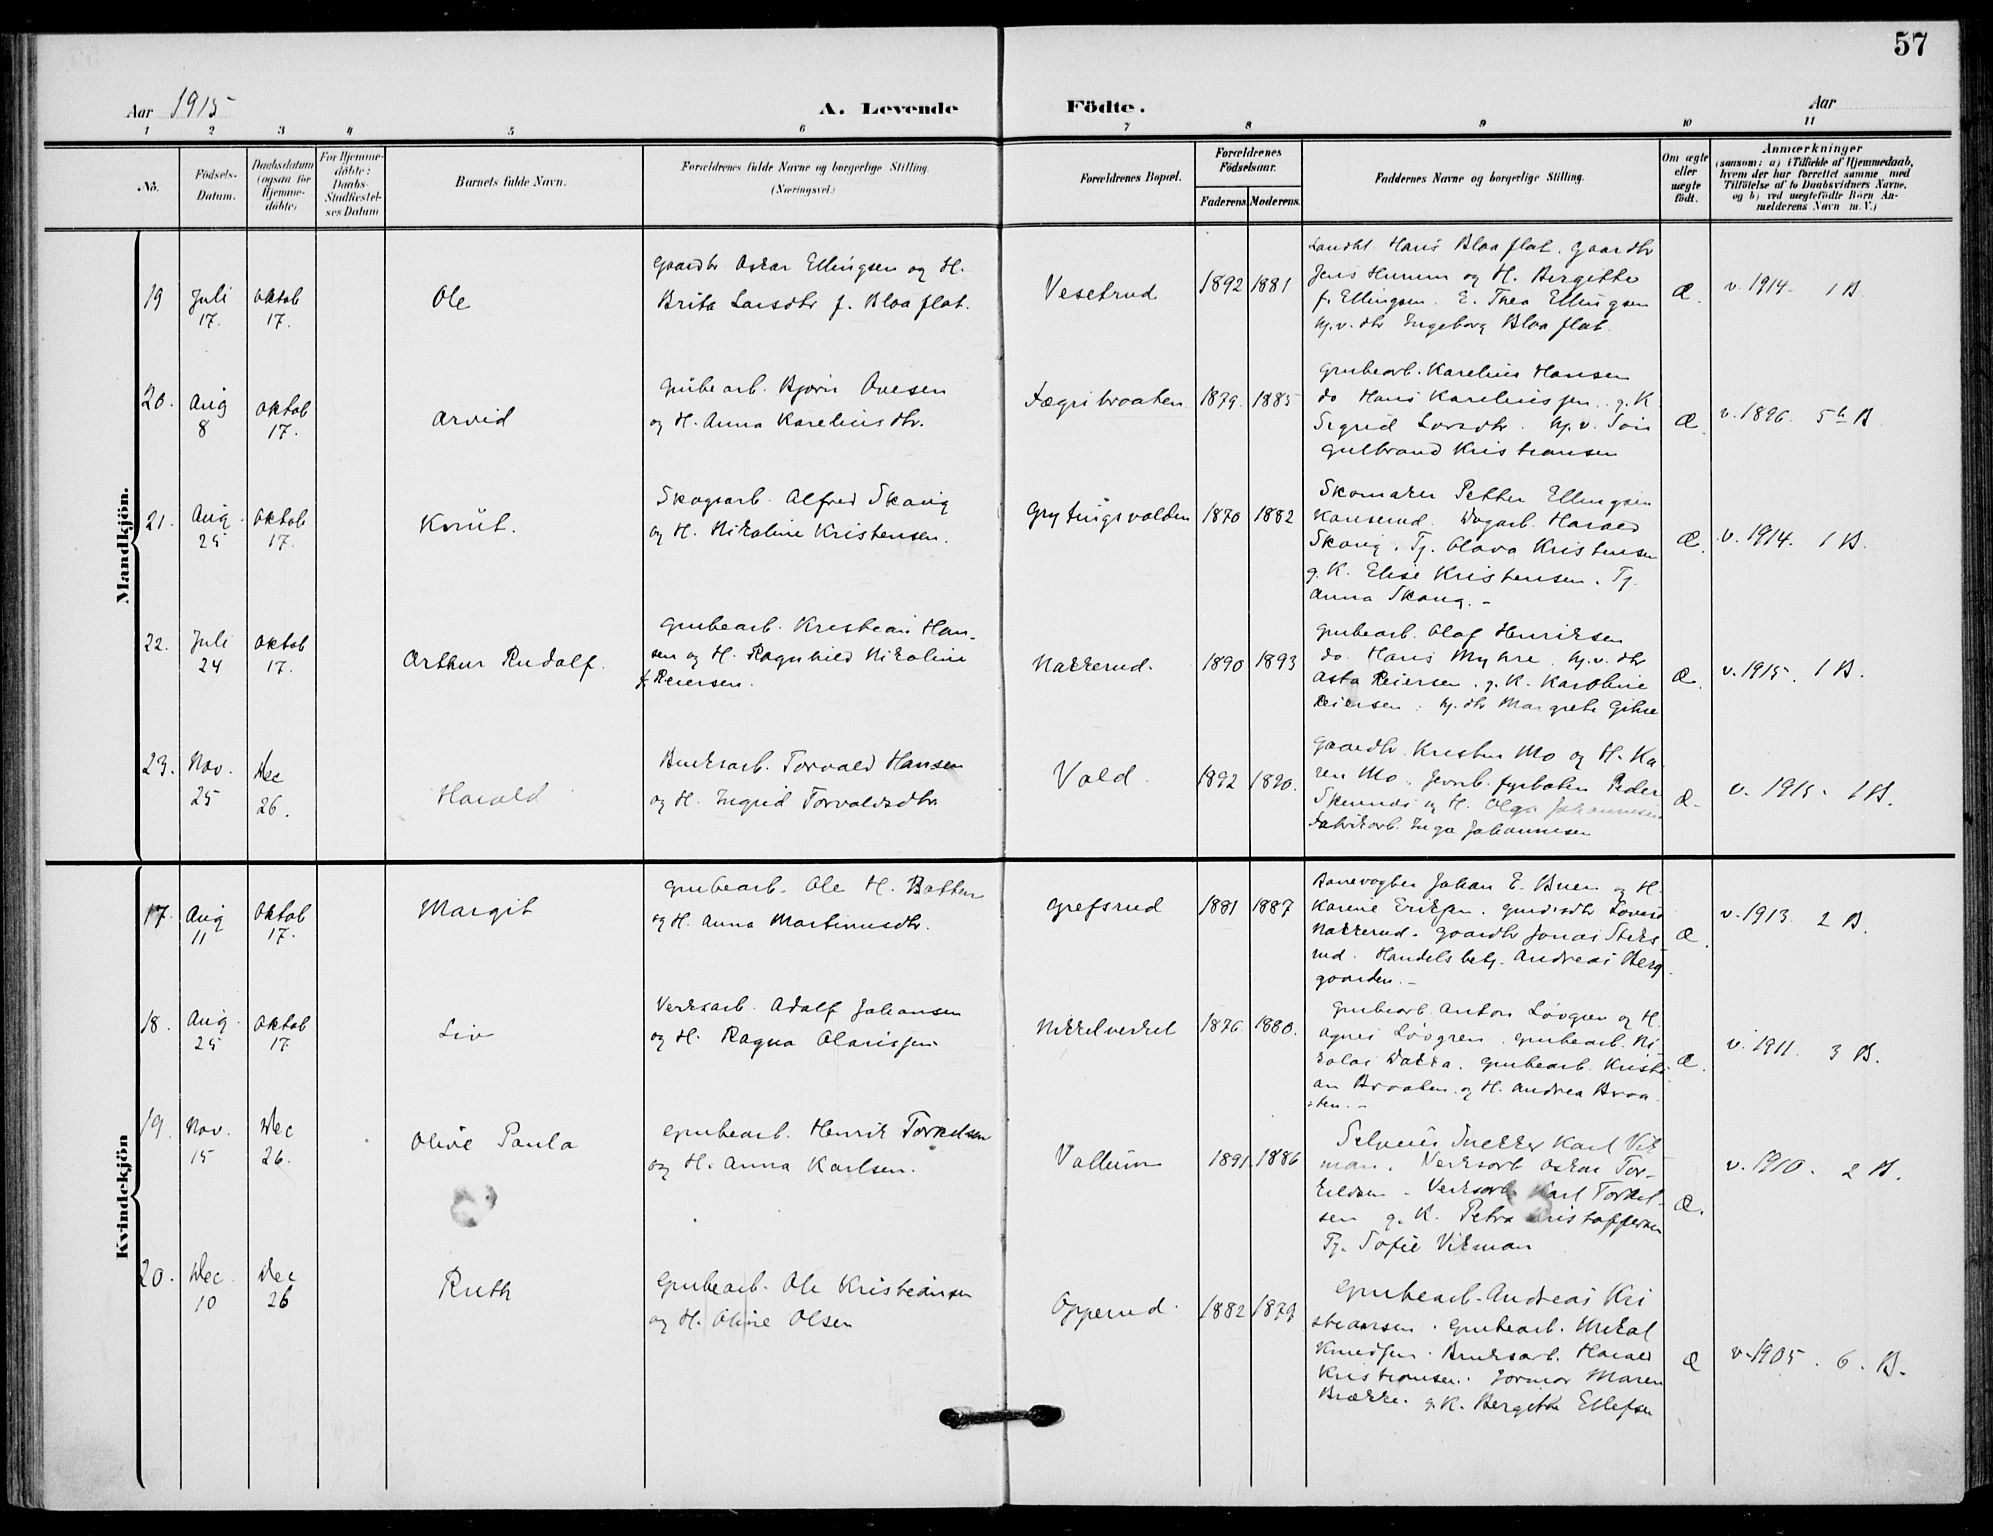 57
Aar 1915
A. Levende Födte.
Aar
1 2 3 4 5 6 7 8 9 10 11
No.
Födsels-Datum.
Daabsdatum (ogsaa for Hjemmedöbte)
For Hjemmedöbte: Daabs-Stadfestelses Datum
Barnets fulde Navn.
Forældrenes fulde Navne og borgerlige Stilling.
(Næringsvei.)
Forældrenes Bopæl.
Forældrenes Födselsaar.
Faderens. Moderens.
Faddernes Navne og borgerlige Stilling.
Om ægte eller uægte födt.
Anmærkninger
(saasom: a) i Tilfælde af Hjemmedaab,
hvem der har forrettet samme med
Tilföielse af to Daabsvidners Navne,
og b) ved uægtefödte Börn An-
melderens Navn m.V.)
Mandkjön.
19 Juli 17. Oktob 17.
Ole
Gaardbr. Oskar Ellingsen og H.
Brita Larsdtr f. Blaaflat.
Vesetrud
1892 1881
Landhl. Hans Blaaflat. Gaardbr
Jens Hurum og H. Bergitte
f. Ellingsen. E. Thea Ellingsen
hj.v. dtr Ingeborg Blaaflat.
Æ.
v. 1914 1 B.
20. Aug 8 Oktob 17.
Arvid
Grubearb. Bjørn Ovesen
og H. Anna Kareliusdtr.
Fægribraaten
1879. 1885
Grubearb. Karelius Hansen
do Hans Kareliussen. g. K.
Sigrid Larsdtr. hj.v. Søn
Gulbrand Kristiansen
Æ.
v. 1896 5 B.
21. Aug. 25 Oktob 17.
Knut.
Skogsarb. Alfred Skaug
og H. Nikoline Kristensen.
Grytingsvolden
1870 1882
Skomaker Petter Ellingsen
Kanserud. Dagarb. Harald
Skaug. Tj. Olava Kristensen
g. K. Elise Kristensen. Tj.
Anna Skaug. -
Æ.
v. 1914. 1 B.
22. Juli 24 Oktob 17.
Arthur Rudolf.
Grubearb. Kristian Han-
sen og H. Ragnhild Nikoline
f. Reiersen.
Nakkerud.
1890 1893
Grubearb. Olaf Henriksen
do. Hans Myhre. hj.v. dtr
Asta Reiersen. g. K. Karoline
Reiersen. hj. dtr Margrete
Æ.
v. 1915. 1 B.
23. Nov. 25 Dec 26.
Harald
Bruksarb. Torvald Hansen
og H. Ingrid Torvaldsdtr.
Vold
1892 1890.
Gaardbr. Kristen Mo og H. Ka-
ren Mo. Jernb. fyrbøter Peder
og H. Olga Johannesen
Fabrikarb. Inga Johannesen
Æ
v. 1915. 1 B.
Kvindekjön
17. Aug 11 Oktob 17.
Margit
Grubearb. Ole H. Batten
og H. Anna Martinusdtr.
Grefsrud
1881 1887
Banevogter Johan E. Buen og H.
Karine Eriksen.
Nakkerud. Gaardbr Jonas Steks-
rud. Handelsbetj. Andreas Berg-
gaarden. -
Æ.
v. 1913. 2 B.
18. Aug. 25 Oktob 17
Liv
Verksarb. Adolf Johansen
og H. Ragna Olarissen
Nikkelverket
1876. 1880.
Grubearb. Anton Løvgren og H.
Agnes Løvgren. Grubearb. Ni-
kolai Dakka. Grubearb. Kristi-
an Braaten. og H. Andrea Braa-
ten. -
Æ.
v. 1911. 3 B.
19. Nov. 15 Dec 26.
Olive Paula
Grubearb. Henrik Torkelsen
og H. Anna Karlsen.
Vollum
1891. 1886
Snekker Karl Vik-
man. Verksarb Oskar Tor-
kildsen. Verksarb. Karl Torkel-
sen g. K. Petra Kristoffersen
Tj. Sofie Vikman
Æ.
v. 1910. 2 B.
20. Dec 10 Dec 26
Ruth
Grubearb. Ole Kristiansen
og H. Oline Olsen
Opperud.
1882 1879
Grubearb. Andreas Kri-
stiansen. Grubearb. Mikal
Knudsen. Bruksarb. Harald
Kristiansen. Jormor Maren
Brække. g. K. Bergitte Ellefsen
Æ
v. 1905. 6. B.